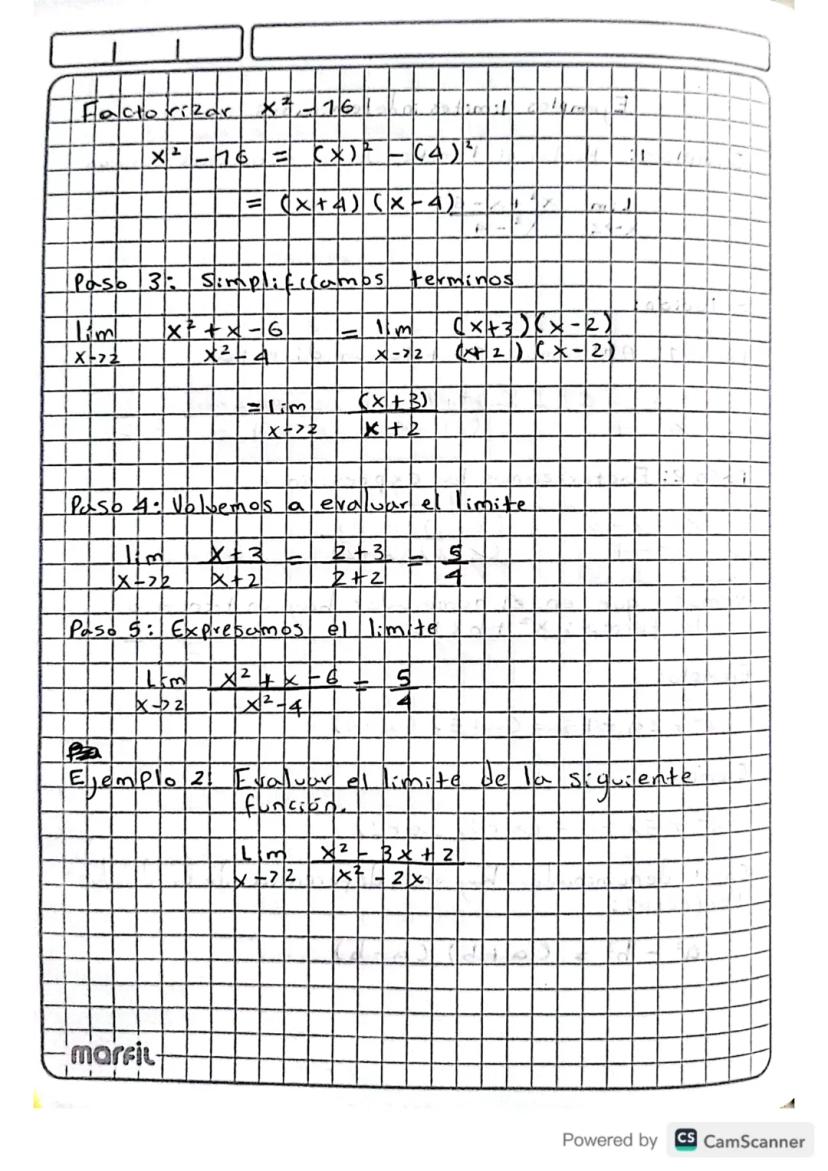 Factorizar x² - 16
x² - 16 = (x)² - (4)²
= (x+4) (x-4)
Paso 3: Simplificamos terminos
lim x→2 x² + x - 6 / x² - 4 = lim x→2 (x+3)(x-2) / (x+2)(x-2)
= lim x→2 (x+3) / x+2
Paso 4: Volvemos a evaluar el limite
lim x→2 x+3 / x+2 = 2+3 / 2+2 = 5/4
Paso 5: Expresamos el limite
Lim x→2 x² + x - 6 / x² - 4 = 5/4
Ejemplo 2: Evaluar el limite de la siguiente
función.
Lim x→2 x² - 3x + 2 / x² - 2x
marfil
Powered by CS CamScanner